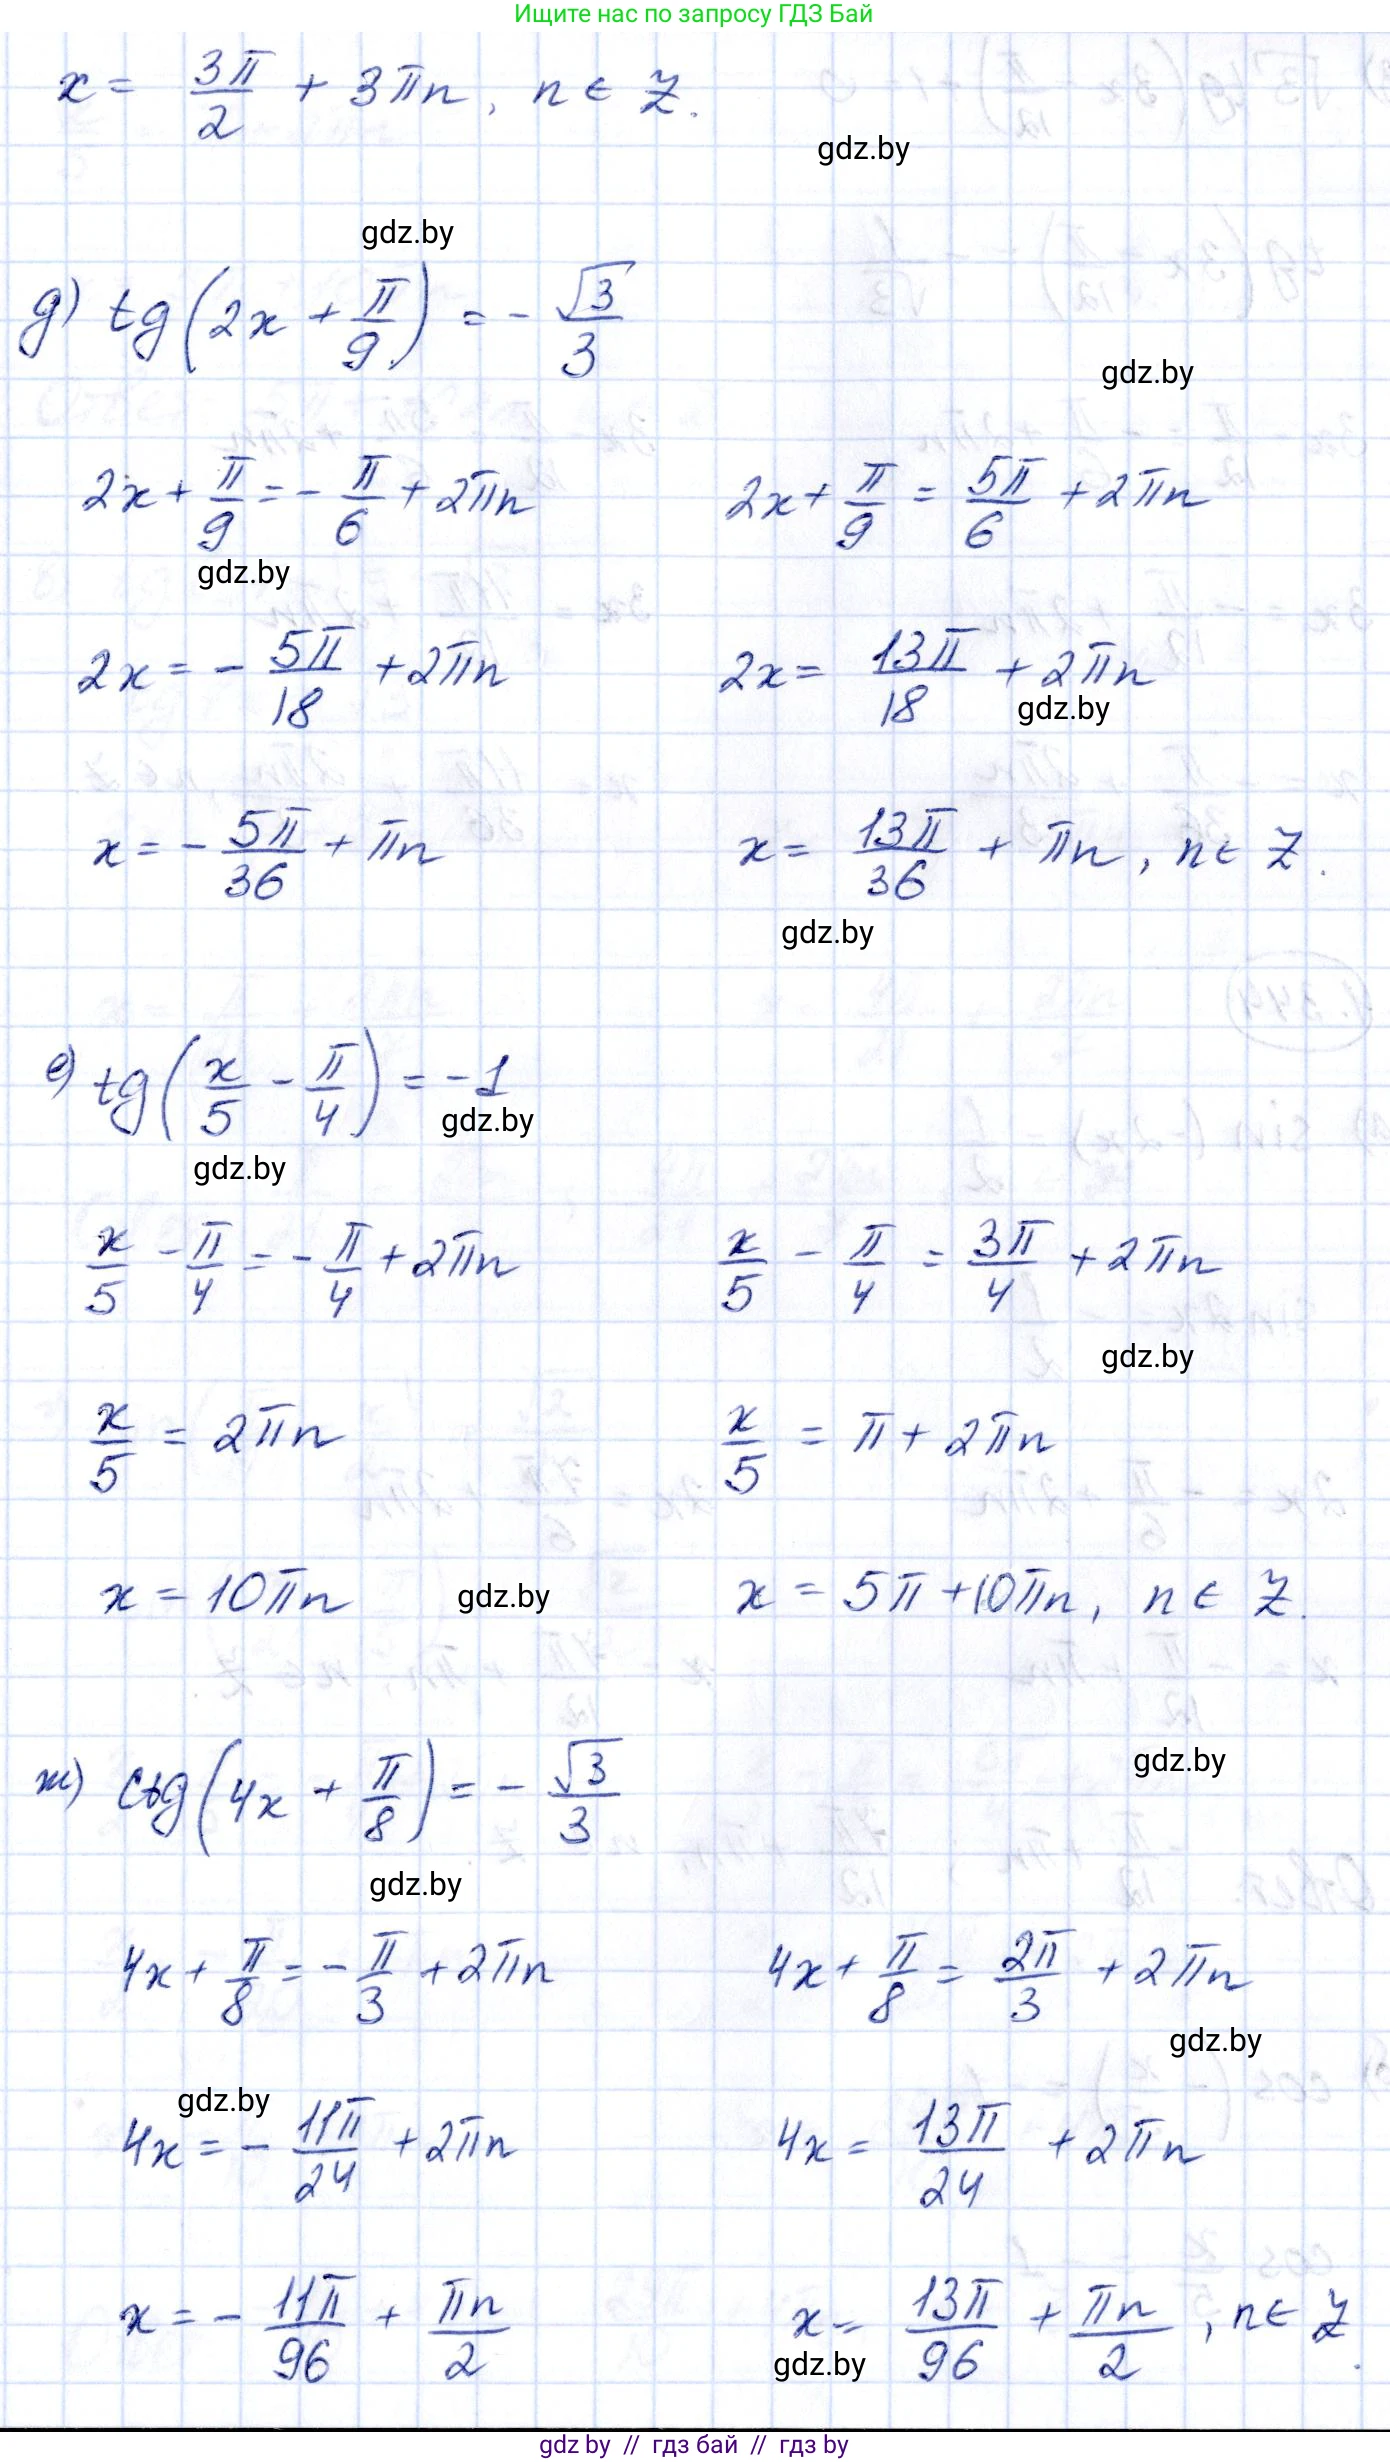 Ищите нас по запросу ГДЗ Бай
x = 3π/2 + 3πn, n ∈ Z.
gdz.by
gdz.by
д) tg(2x + π/9) = - √3/3
gdz.by
2x + π/9 = - π/6 + 2πn    2x + π/9 = 5π/6 + 2πn
gdz.by
2x = - 5π/18 + 2πn    2x = 13π/18 + 2πn
gdz.by
x = - 5π/36 + πn    x = 13π/36 + πn, n ∈ Z.
gdz.by
е) tg(x/5 - π/4) = -1
gdz.by
gdz.by
x/5 - π/4 = - π/4 + 2πn    x/5 - π/4 = 3π/4 + 2πn
gdz.by
x/5 = 2πn    x/5 = π + 2πn
x = 10πn    gdz.by    x = 5π + 10πn, n ∈ Z.
gdz.by
ж) ctg(4x + π/8) = - √3/3
gdz.by
4x + π/8 = - π/3 + 2πn    4x + π/8 = 2π/3 + 2πn
gdz.by
gdz.by
4x = - 11π/24 + 2πn    4x = 13π/24 + 2πn
x = - 11π/96 + πn/2    x = 13π/96 + πn/2, n ∈ Z.
gdz.by
gdz by // гдз бай // gdz by